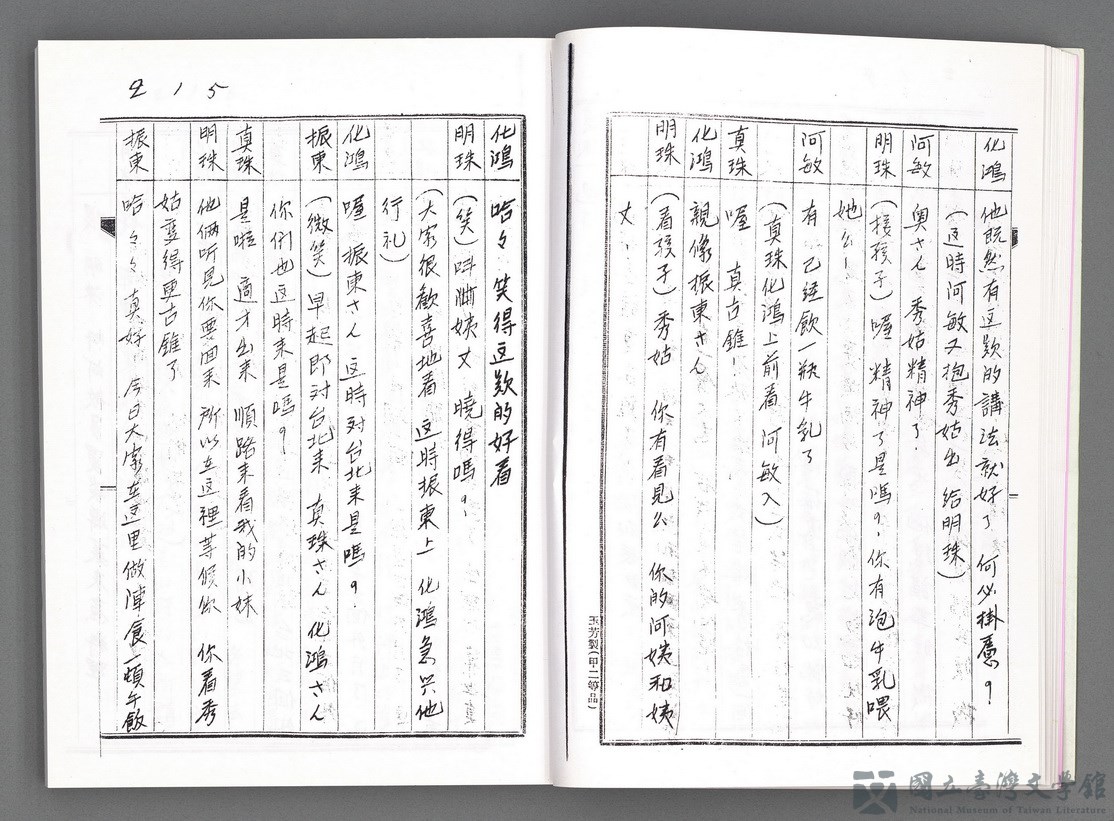 化鴻 他既然有这款的講法就好了 何必掛慮？
（这時阿敏又抱秀姑出 給明珠）
阿敏 奥さん 秀姑精神了．
明珠 （接孩子）喔 精神了是嗎？你有泡牛乳喂
她么！
阿敏 有 己經飲一瓶牛乳了
（真珠化鴻上前看 阿敏入）
真珠 喔 真古錐！
化鴻 親像振東さん
明珠 （看孩子）秀姑 你有看見么 你的阿姨和姨
丈．
玉芳製（甲二等品）
215
化鴻 哈々 笑得这款的好看
明珠 （笑） 姨丈 曉得嗎？
（大家很歡喜地看 这時振東上 化鴻急 他
行礼）
化鴻 喔 振東さん 这時对台北来是嗎？
振東 （微笑）早起即对台北来 真珠さん 化鴻さん
你们也这時来是嗎？
真珠 是啦 適才出来 順路来看我的小妹
明珠 他倆听見你要回来 所以在这裡等候你 你看秀
姑变得更古錐了
振東 哈々々 真好 今日大家在这里做陣食一頓午飯
國立臺灣文學館
National Museum of Taiwan Literature